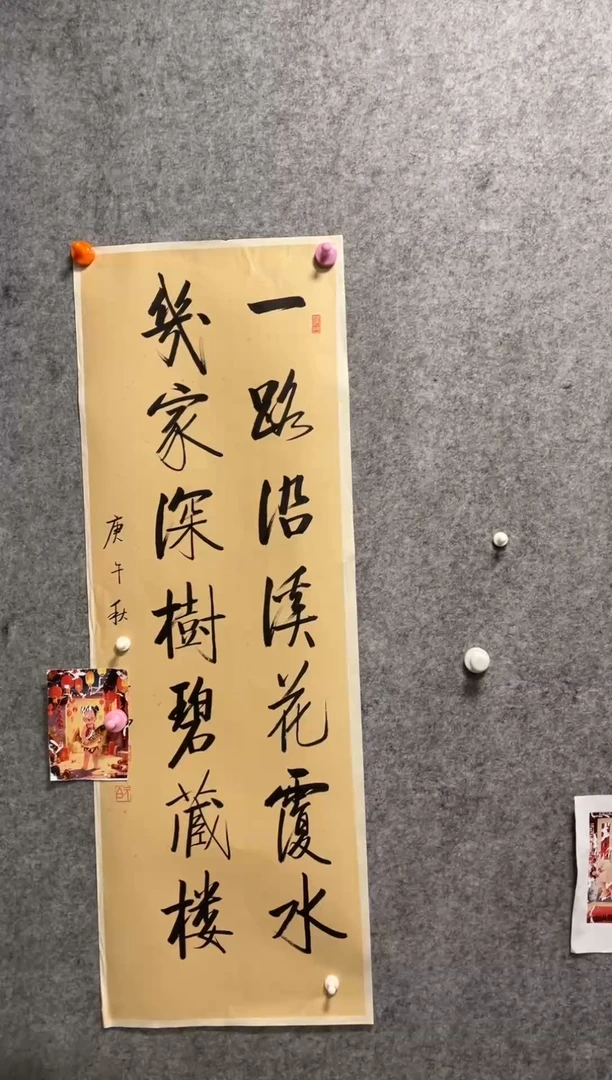 一路沿溪花覆水
幾家深樹碧藏楼
庚午秋